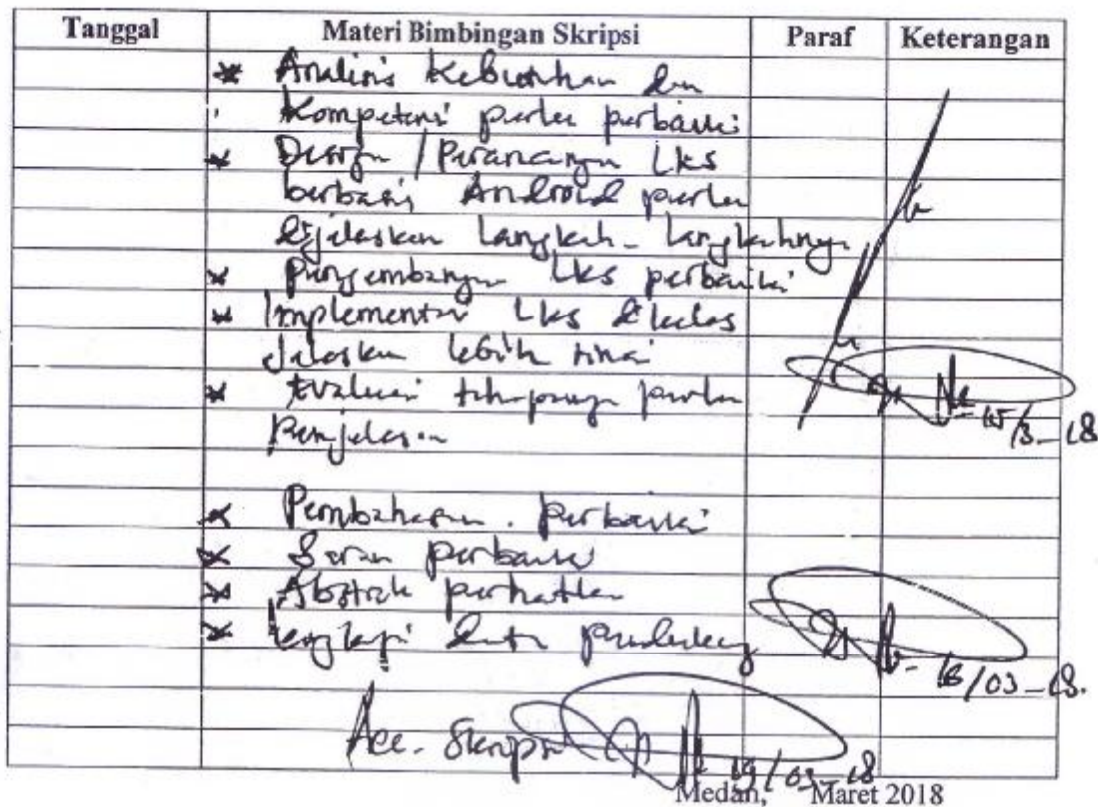 Tanggal Materi Bimbingan Skripsi Paraf Keterangan
* Analisis Kebutuhan dan
Kompetensi perlu perbaiki
* Design / Perancangan LKS
berbasis Android perlu
dijelaskan langkah-langkahnya
* Pengembangan LKS perbaiki
* Implementasi LKS dikelas
Jelaskan lebih rinci
* Evaluasi tahapannya perlu
Penjelasan
15/3-18
* Pembahasan. perbaiki
* Saran perbaiki
* Abstrak perhatikan
* Lengkapi data pendukung
16/03-18.
Acc. Skripsi 19/03-18
Medan, Maret 2018